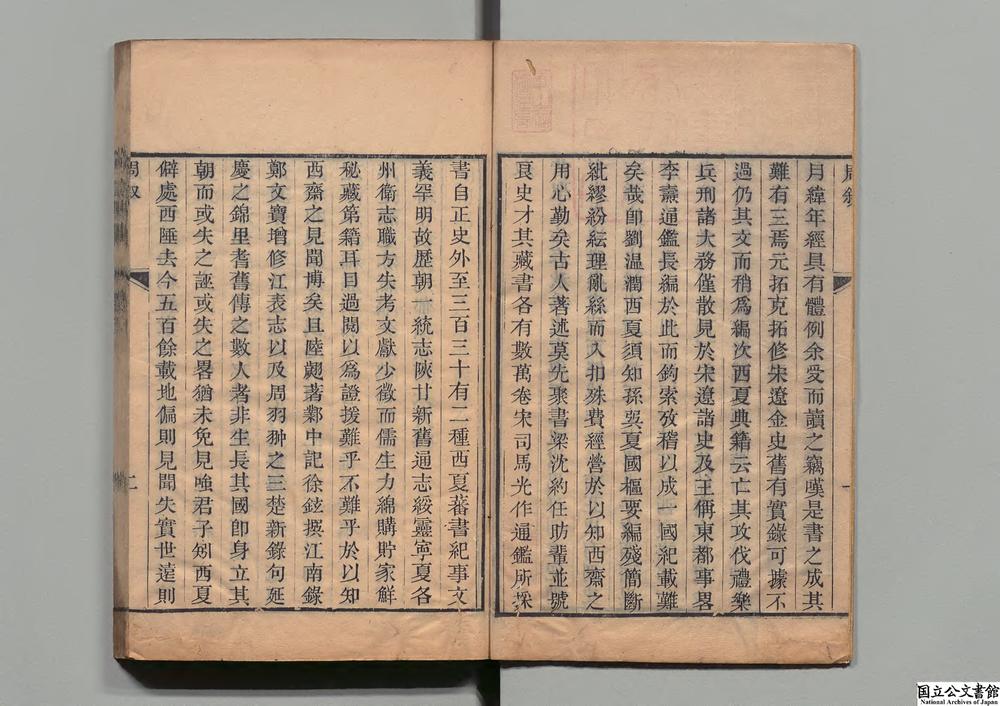 月緯年經具有體例余受而讀之竊嘆是書之成其
難有三焉元拓克拓修宋遼金史舊有實錄可據不
過仍其文而稍爲編次西夏典籍云亡其攻伐禮樂
兵刑諸大務僅散見於宋遼諸史及王偁東都事畧
李燾通鑑長編於此而鉤索攷稽以成一國紀載難
矣哉卽劉温潤西夏須知孫㢲夏國樞要編殘簡斷
紕繆紛紜理亂絲而入扣殊費經營於以知西齋之
用心勤矣古人著述莫先聚書梁沈約任昉輩並號
良史才其藏書各有數萬卷宋司馬光作通鑑所採
書自正史外至三百三十有二種西夏蕃書紀事文
義罕明故歷朝一統志陜甘新舊通志綏靈寧夏各
州衛志職方失考文獻少徵而儒生力綿購貯家鮮
秘藏第籍耳目過閱以爲證援難乎不難乎於以知
西齋之見聞博矣且陸翽著鄴中記徐鉉撰江南錄
鄭文寶增修江表志以及周羽翀之三楚新錄句延
慶之錦里耆舊傳之數人者非生長其國卽身立其
朝而或失之誣或失之畧猶未免見嗤君子矧西夏
僻處西陲去今五百餘載地偏則見聞失實世遠則
周叙
二
国立公文書館
National Archives of Japan